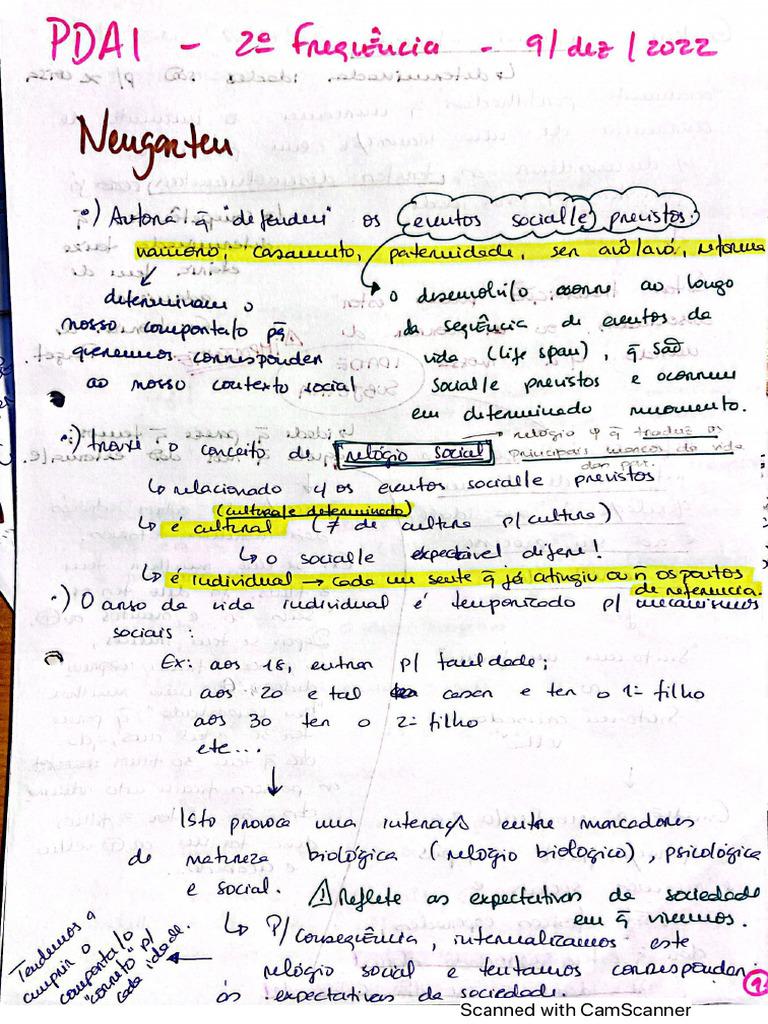 PDAI - 2ª Frequência - 9/dez/2022
Neugarten
•) Autora q̄ "defendeu" os eventos social/e previstos:
namoro, casamento, paternidade, ser avô/avó, reforma
↳ determinam o
nosso comporta/o pq̄
queremos corresponder
ao nosso contexto social
o desenvolvi/o ocorre ao longo
da sequência de eventos da
vida (life span), q̄ são
social/e previstos e ocorrem
em determinado momento.
•) travse o conceito de relógio social → relógio ψ q̄ traduz os
principais marcos da vida
das pss.
↳ relacionado c/ os eventos social/e previstos
(cultural/e determinado)
↳ é cultural (≠ de cultura p/ cultura)
↳ o social/e expectável difere!
↳ é individual → cada um sente q̄ já atingiu ou n̄ os pontos
de referência.
•) O curso da vida individual é temporizado p/ mecanismos
sociais:
Ex: aos 18, entrar p/ faculdade;
aos 20 e tal casar e ter o 1º filho
aos 30 ter o 2º filho
etc...
↓
Isto provoca uma interaçs entre marcadores
de natureza biológica (relógio biológico), psicológica
e social. ⚠ Reflete as expectativas da sociedade
em q̄ vivemos.
↳ P/ consequência, internalizamos este
relógio social e tentamos corresponder
às expectativas da sociedade.
Tendemos a
cumprir o
comporta/o
"correto" p/
cada idade.
Scanned with CamScanner